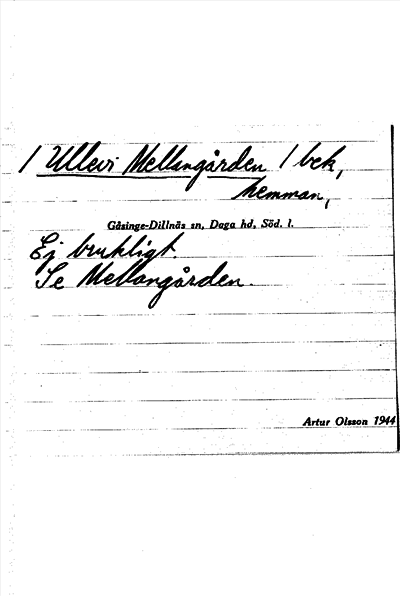 / Ullevi Mellangården / bek,
hemman,
Gåsinge-Dillnäs sn, Daga hd, Söd. l.
Ej brukligt.
Se Mellangården.
Artur Olsson 1944